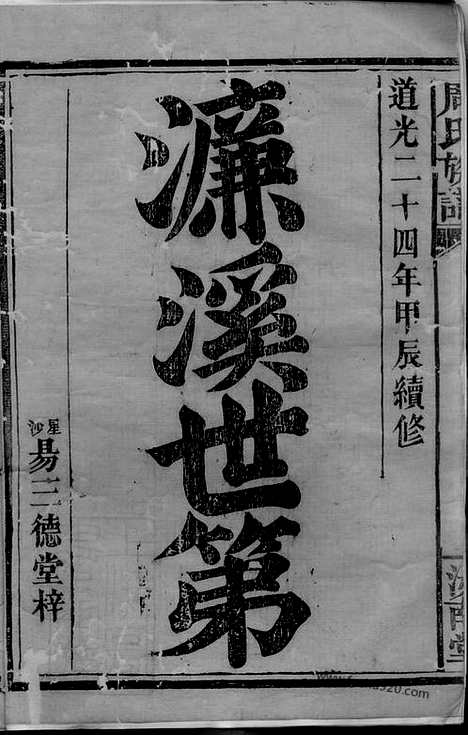 周氏族譜
道光二十四年甲辰續修
濂溪世第
星沙
易三德堂梓